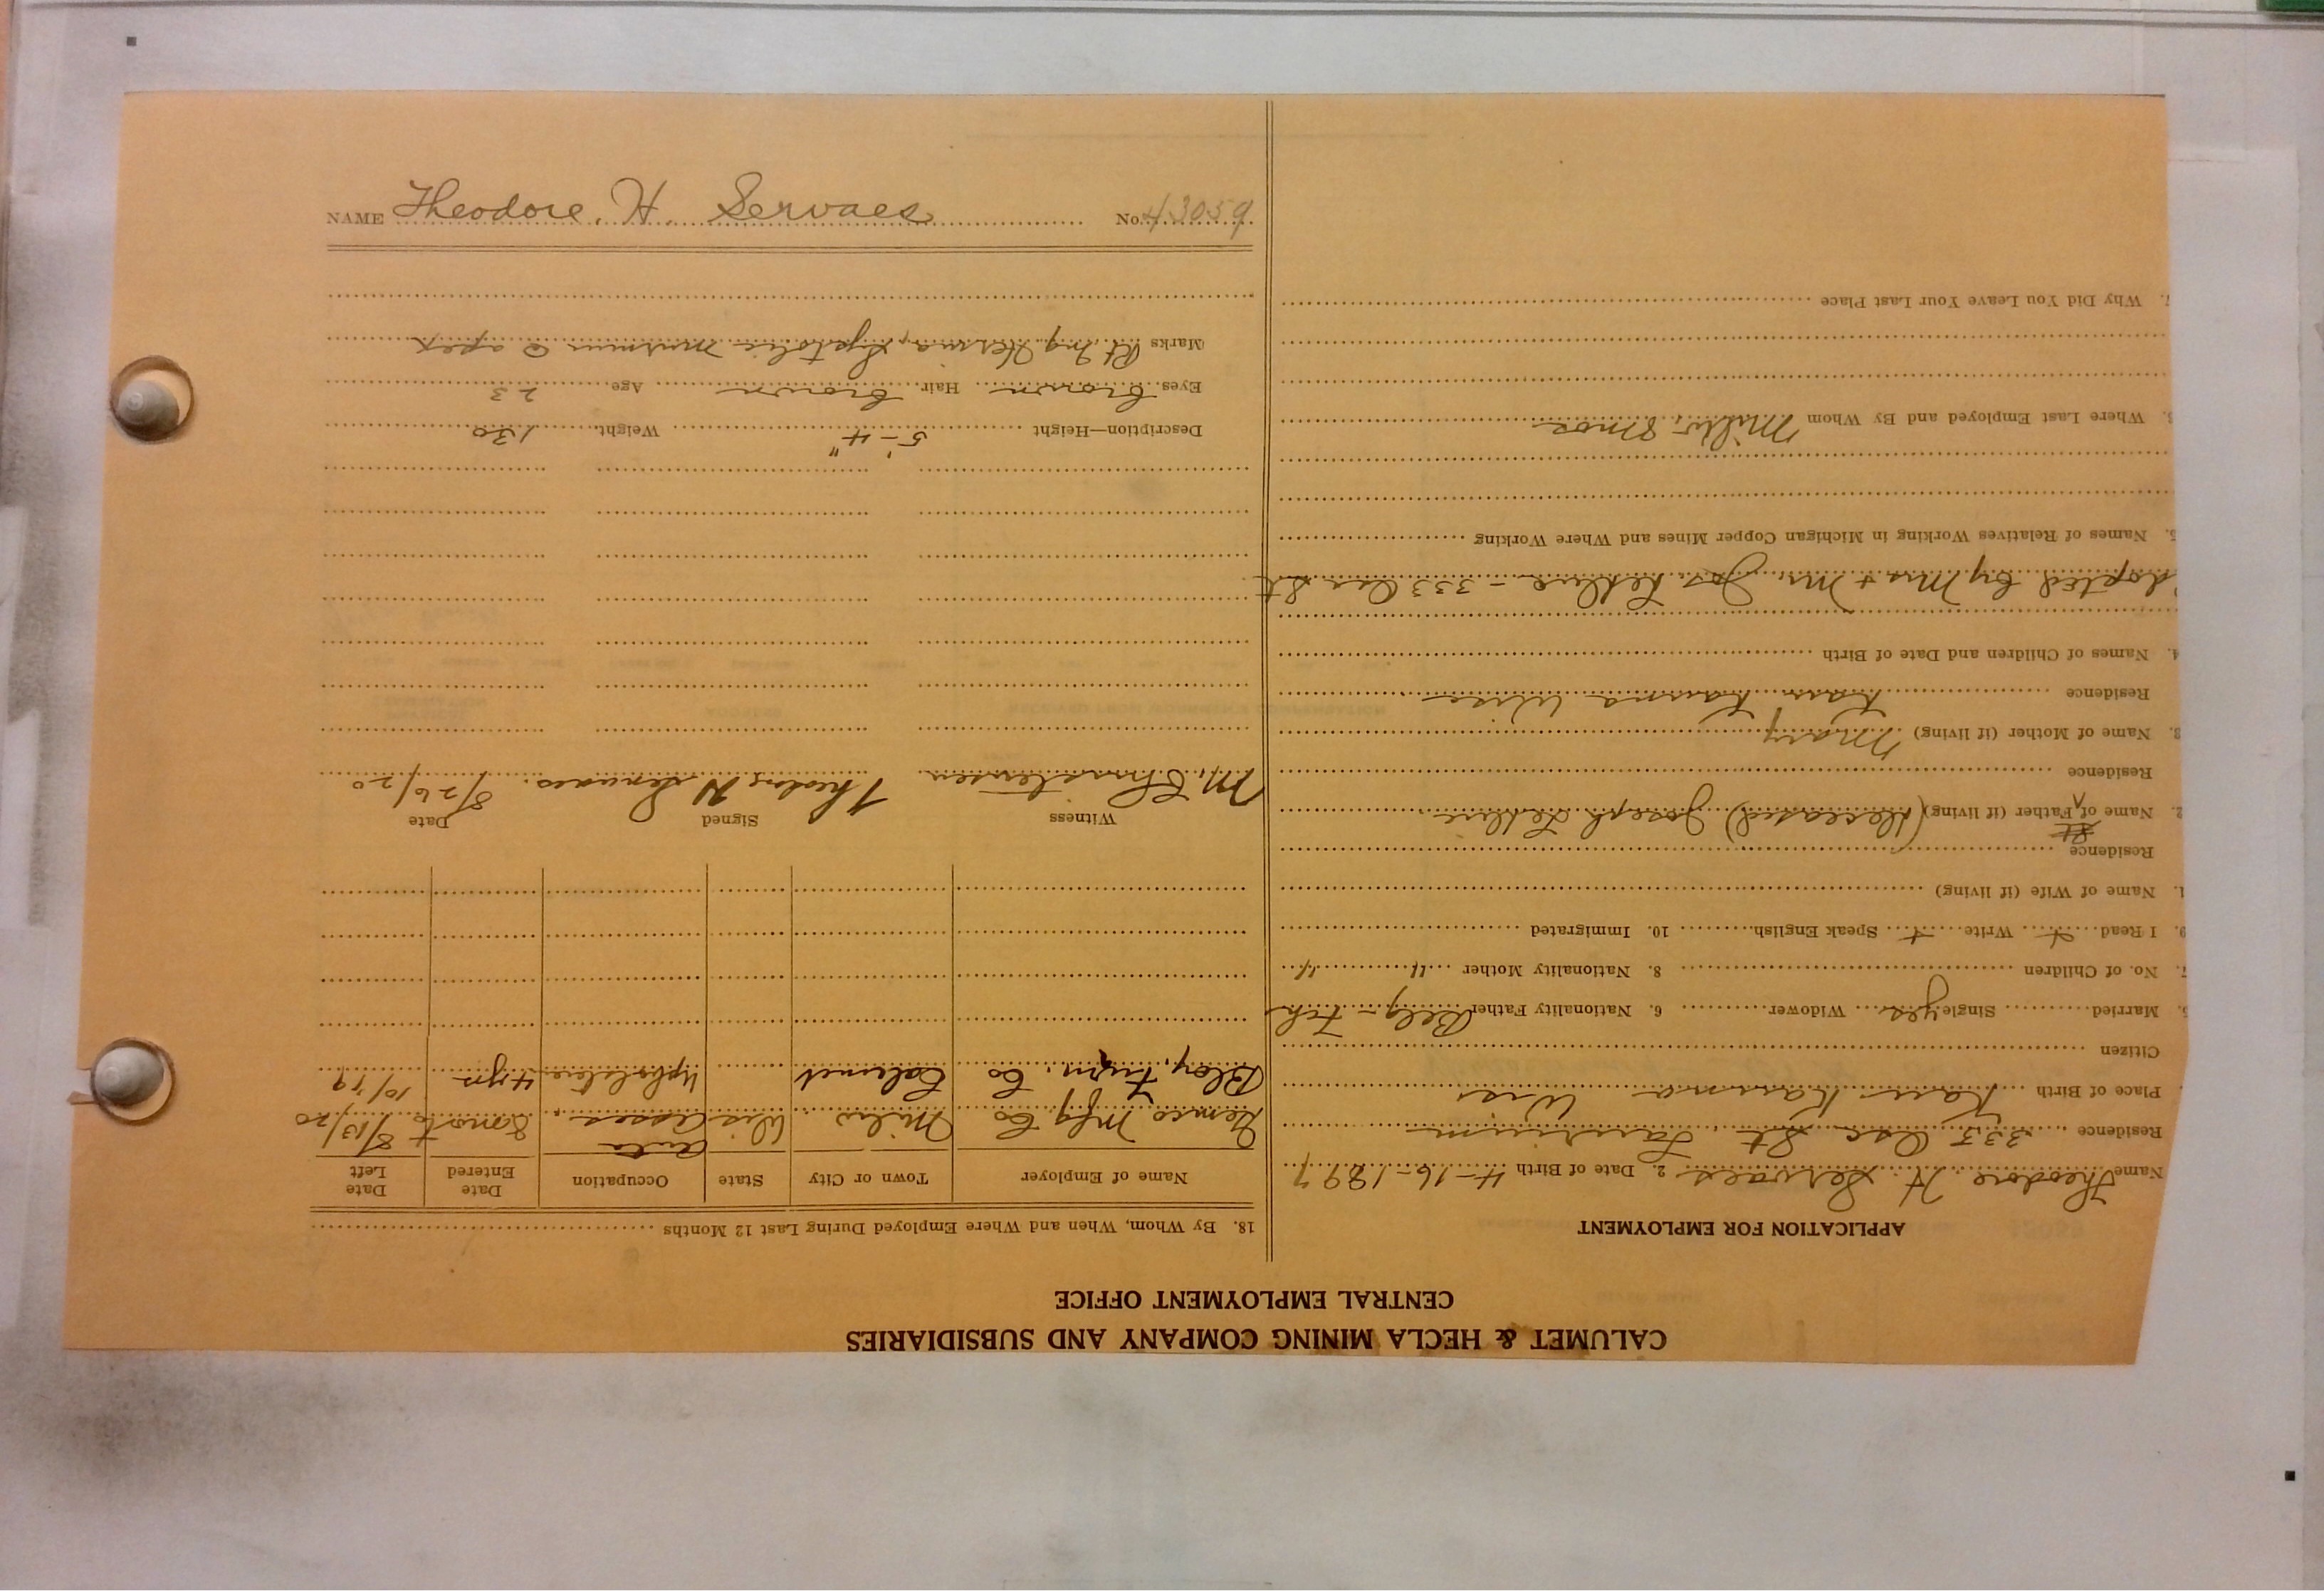 CALUMET & HECLA MINING COMPANY AND SUBSIDIARIES
CENTRAL EMPLOYMENT OFFICE
APPLICATION FOR EMPLOYMENT
Name Theodore. H. Servaes 2. Date of Birth 4-16-1897
Residence 333 Osc St Laurium
Place of Birth Kau Kauna Wis
Citizen
Married Single yes Widower 6. Nationality Father Belg - Fch
7. No. of Children 8. Nationality Mother " "
9. I Read + Write + Speak English 10. Immigrated
1. Name of Wife (if living)
Residence
2. Name of St Father (if living) (deceased) Joseph
Residence
3. Name of Mother (if living) Mary
Residence Kau Kauna Wisc
4. Names of Children and Date of Birth
adopted by Mrs + Mr. Jos. - 333 Osc St
5. Names of Relatives Working in Michigan Copper Mines and Where Working
Where Last Employed and By Whom Milw. 8 mos
7. Why Did You Leave Your Last Place
18. By Whom, When and Where Employed During Last 12 Months
Name of Employer Town or City State Occupation Date Entered Date Left
Mfg Co Milw Wis Auto Asses. 8 mos to 8/13/20
Furn. Co Calumet Upholsterer 4 yrs 10/19
Witness Signed Date
M. Christensen Theodore H Servaes. 8/26/20
Description—Height 5'-4" Weight 130
Eyes brown Hair brown Age 23
Marks Rt. Ing. Hernia, Systolic murmur @ apex
NAME Theodore. H. Servaes No. 43059